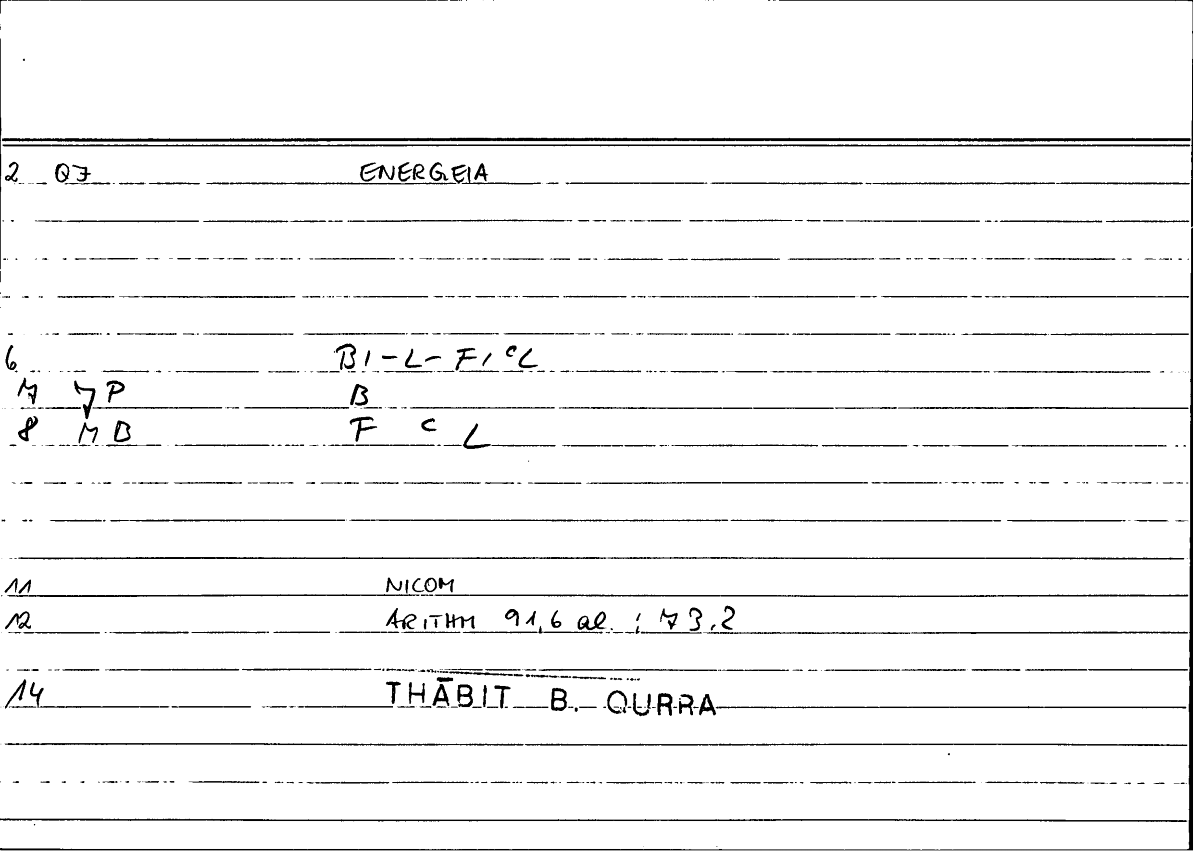 2 Q7 ENERGEIA
6 BI-L-FIᶜL
7 P B
8 MB F ᶜ L
11 NICOM
12 ARITHM 91,6 al. : 73.2
14 THĀBIT B. QURRA